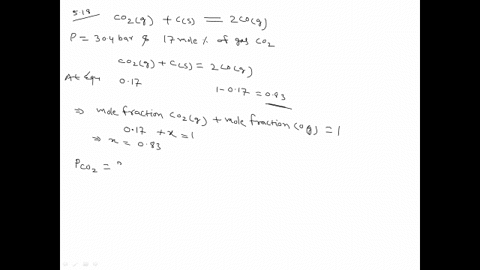 5.18 CO2(g) + C(s) = 2CO(g)
P = 304 bar & 17 mole % of gas CO2
CO2(g) + C(s) = 2CO(g)
At Eqm 0.17 1-0.17 = 0.83
⇒ mole fraction CO2(g) + mole fraction CO(g) = 1
0.17 + x = 1
⇒ x = 0.83
PCO2 =